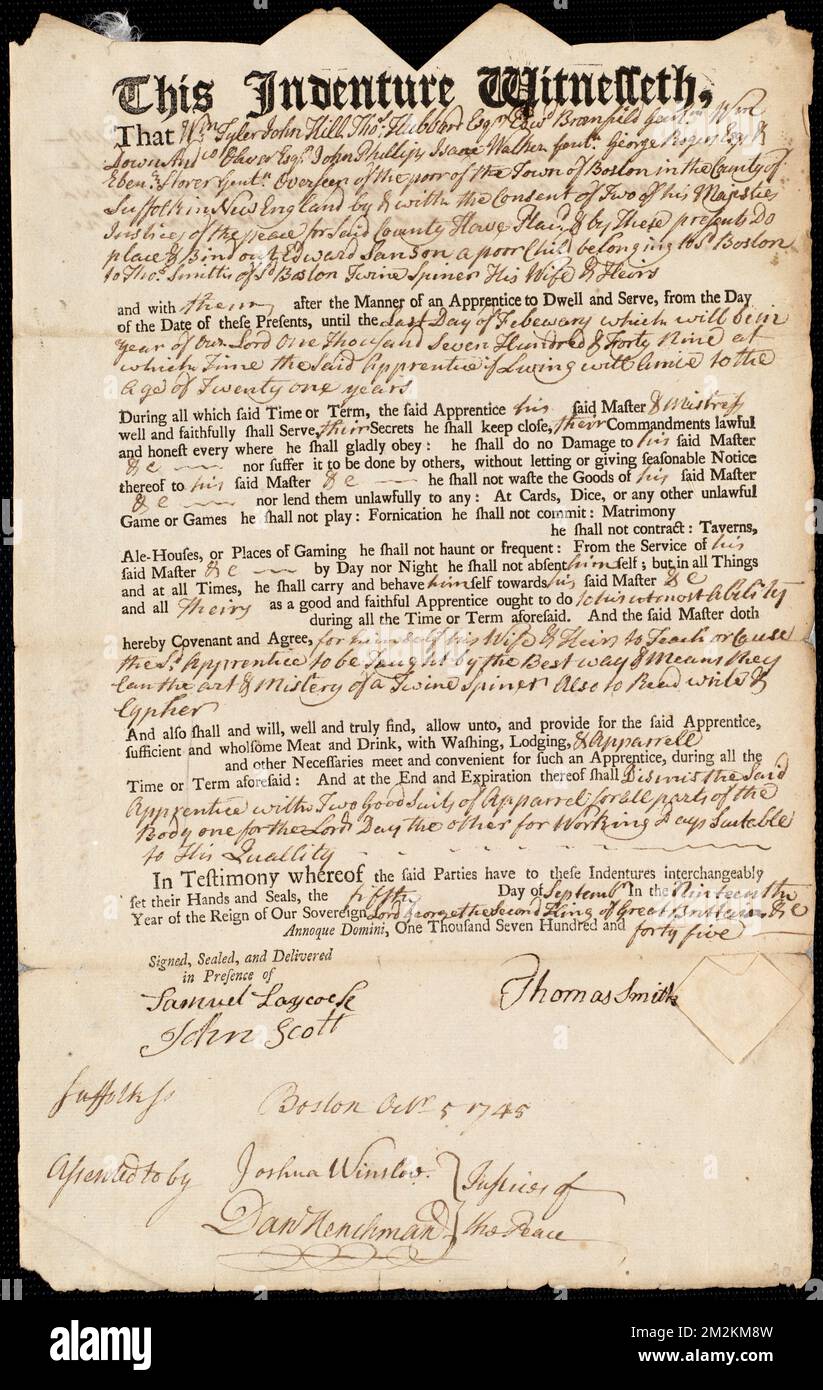 This Indenture Witnesseth,
That Wm Tyler John Hill, Thos Hubbard Esqrs Edwd Bromfield Gentn Wm
And.w Oliver Esqr John Phillips Isaac Walker Gentn George Rogers Esqr &
Ebenr Storer Gentn Overseers of the poor of the Town of Boston in the County of
Suffolk in New England by & with the Consent of Two of his Majesties
Justices of the peace for Said County Have Plac'd & by These presents Do
place & Bind out Edward Sanson a poor Child belonging to sd Boston
to Thos Smith of Sd Boston Twine Spiner His Wife & Heirs
and with them after the Manner of an Apprentice to Dwell and Serve, from the Day
of the Date of these Presents, until the Last Day of Febewary which will be in
year of our Lord One Thousand Seven Hundred & Forty Nine at
which Time the Said Apprentice if Living will arrive to the
Age of Twenty one years
During all which said Time or Term, the said Apprentice his said Master & Mistress
well and faithfully shall Serve, their Secrets he shall keep close, their Commandments lawful
and honest every where he shall gladly obey: he shall do no Damage to his said Master
&c nor suffer it to be done by others, without letting or giving seasonable Notice
thereof to his said Master &c he shall not waste the Goods of his said Master
&c nor lend them unlawfully to any: At Cards, Dice, or any other unlawful
Game or Games he shall not play: Fornication he shall not commit: Matrimony
he shall not contract: Taverns,
Ale-Houses, or Places of Gaming he shall not haunt or frequent: From the Service of his
said Master &c by Day nor Night he shall not absent himself; but in all Things
and at all Times, he shall carry and behave himself towards his said Master &c
and all Theirs as a good and faithful Apprentice ought to do to his utmost Ability
during all the Time or Term aforesaid. And the said Master doth
hereby Covenant and Agree, for himself his Wife & Heirs to Teach or Cause
the Sd Apprentice to be Taught by the Best way & Means they
Can the art & Mistery of a Twine Spiner Also to Read write &
Cypher
And also shall and will, well and truly find, allow unto, and provide for the said Apprentice,
sufficient and wholsome Meat and Drink, with Washing, Lodging, & Apparrell
and other Necessaries meet and convenient for such an Apprentice, during all the
Time or Term aforesaid: And at the End and Expiration thereof shall Dismis the Said
Apprentice with Two Good Suits of Apparrel for all parts of the
Body one for the Lords Day the other for Working Days Sutable
to His Quallity
In Testimony whereof the said Parties have to these Indentures interchangeably
set their Hands and Seals, the fifth Day of Septembr In the Nineteenth
Year of the Reign of Our Sovereign Lord George the Second King of Great Brittain &c
Annoque Domini, One Thousand Seven Hundred and forty five
Signed, Sealed, and Delivered
in Presence of
Samuel Laycock
John Scott
Thomas Smith
Suffolk ss
Boston Octr 5 1745
Assented to by Joshua Winslow. Justices of
Danl Henchman the Peace
alamy
Image ID: 2M2KM8W
www.alamy.com